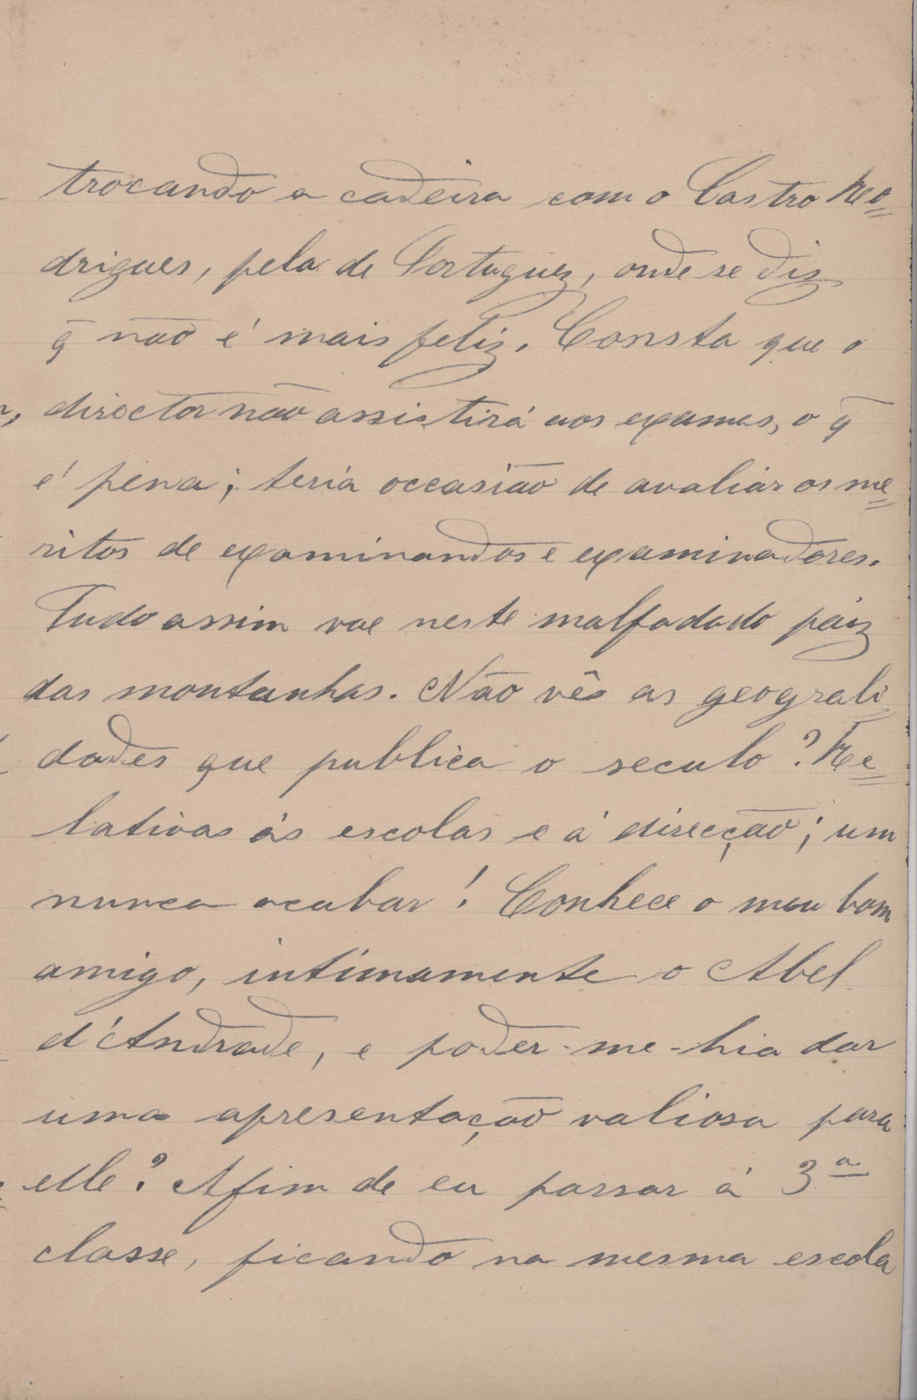 trocando a cadeira com o Castro Ro=
drigues, pela de Portuguez, onde se diz
q̄ não é mais feliz. Consta que o
director não assistirá aos exames, o q̄
é pena; teria occasião de avaliar os me=
ritos de examinandos e examinadores.
Tudo assim vae neste malfadado páiz
das montanhas. Não vês as geograli
dades que publica o seculo? Re=
lativas ás escolas e á direcção; um
nunca acabar! Conhece o meu bom
amigo, intimamente o Abel
d'Andrade, e poder-me-hia dar
uma apresentação valiosa para
elle? Afim de eu passar á 3ª
classe, ficando na mesma escola